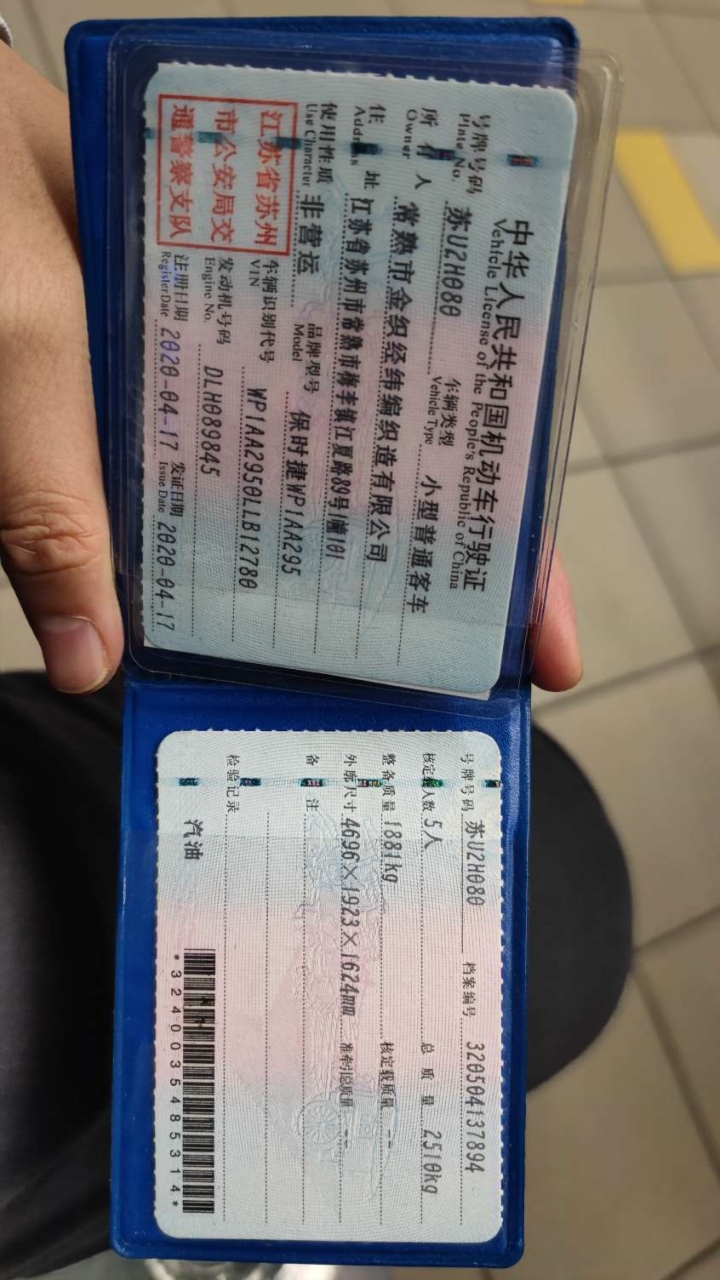 中华人民共和国机动车行驶证
Vehicle License of the People's Republic of China
号牌号码 苏U2H080 车辆类型 小型普通客车
Plate No. Vehicle Type
所有人 常熟市金织经纬编织造有限公司
Owner
住址 江苏省苏州市常熟市梅李镇江夏路89号1幢101
Address
使用性质 非营运 品牌型号 保时捷WP1AA295
Use Character Model
江苏省苏州
市公安局交
通警察支队
车辆识别代号 WP1AA2950LLB12780
VIN
发动机号码 DLH089845
Engine No.
注册日期 2020-04-17 发证日期 2020-04-17
Register Date Issue Date
号牌号码 苏U2H080 档案编号 320504137894
核定载人数 5人 总质量 2510kg
整备质量 1881kg 核定载质量 --
外廓尺寸 4696×1923×1624mm 准牵引总质量 --
备注
检验记录
汽油
*3240035485314*